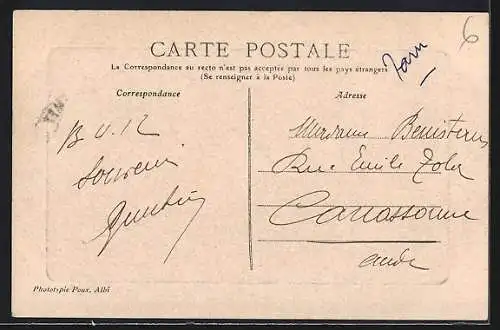 6
Tarn
CARTE POSTALE
La Correspondance au recto n'est pas acceptée par tous les pays étrangers
(Se renseigner à la Poste)
Correspondance
Adresse
Souvenir
Madame
Rue Emile Zola
Carcassonne
Aude
Phototypie Poux, Albi